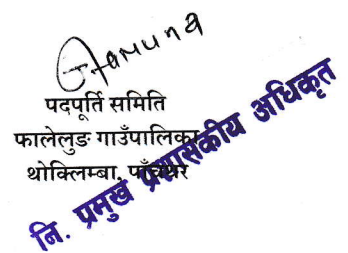 पदपूर्ति समिति
फालेलुङ गाउँपालिका
थोक्लिम्बा, पाँचथर
नि. प्रमुख प्रशासकीय अधिकृत